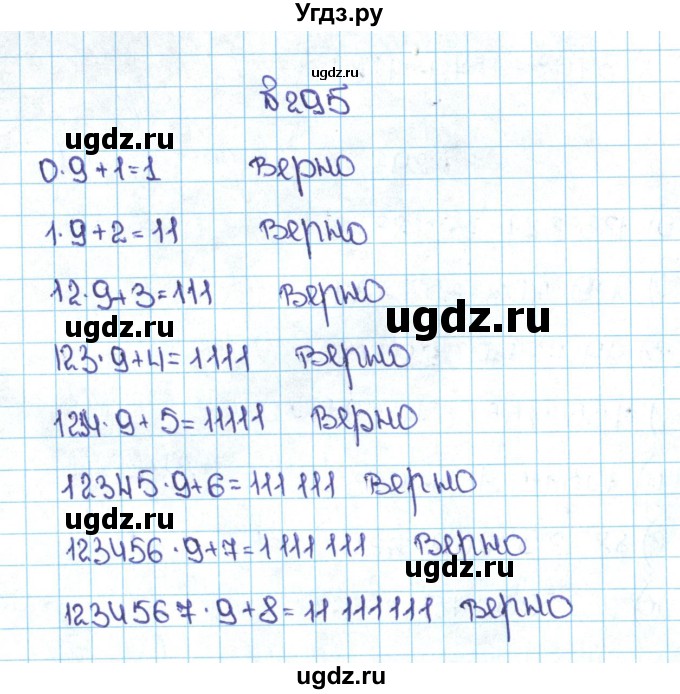 Угдз.ру
ugdz.ru
№295
ugdz.ru
0·9+1=1 Верно
1·9+2=11 Верно
12·9+3=111 Верно
ugdz.ru
ugdz.ru
123·9+4=1111 Верно
1234·9+5=11111 Верно
12345·9+6=111 111 Верно
ugdz.ru
123456·9+7=1 111 111 Верно
ugdz.ru
1234567·9+8=11 111 111 Верно
ugdz.ru